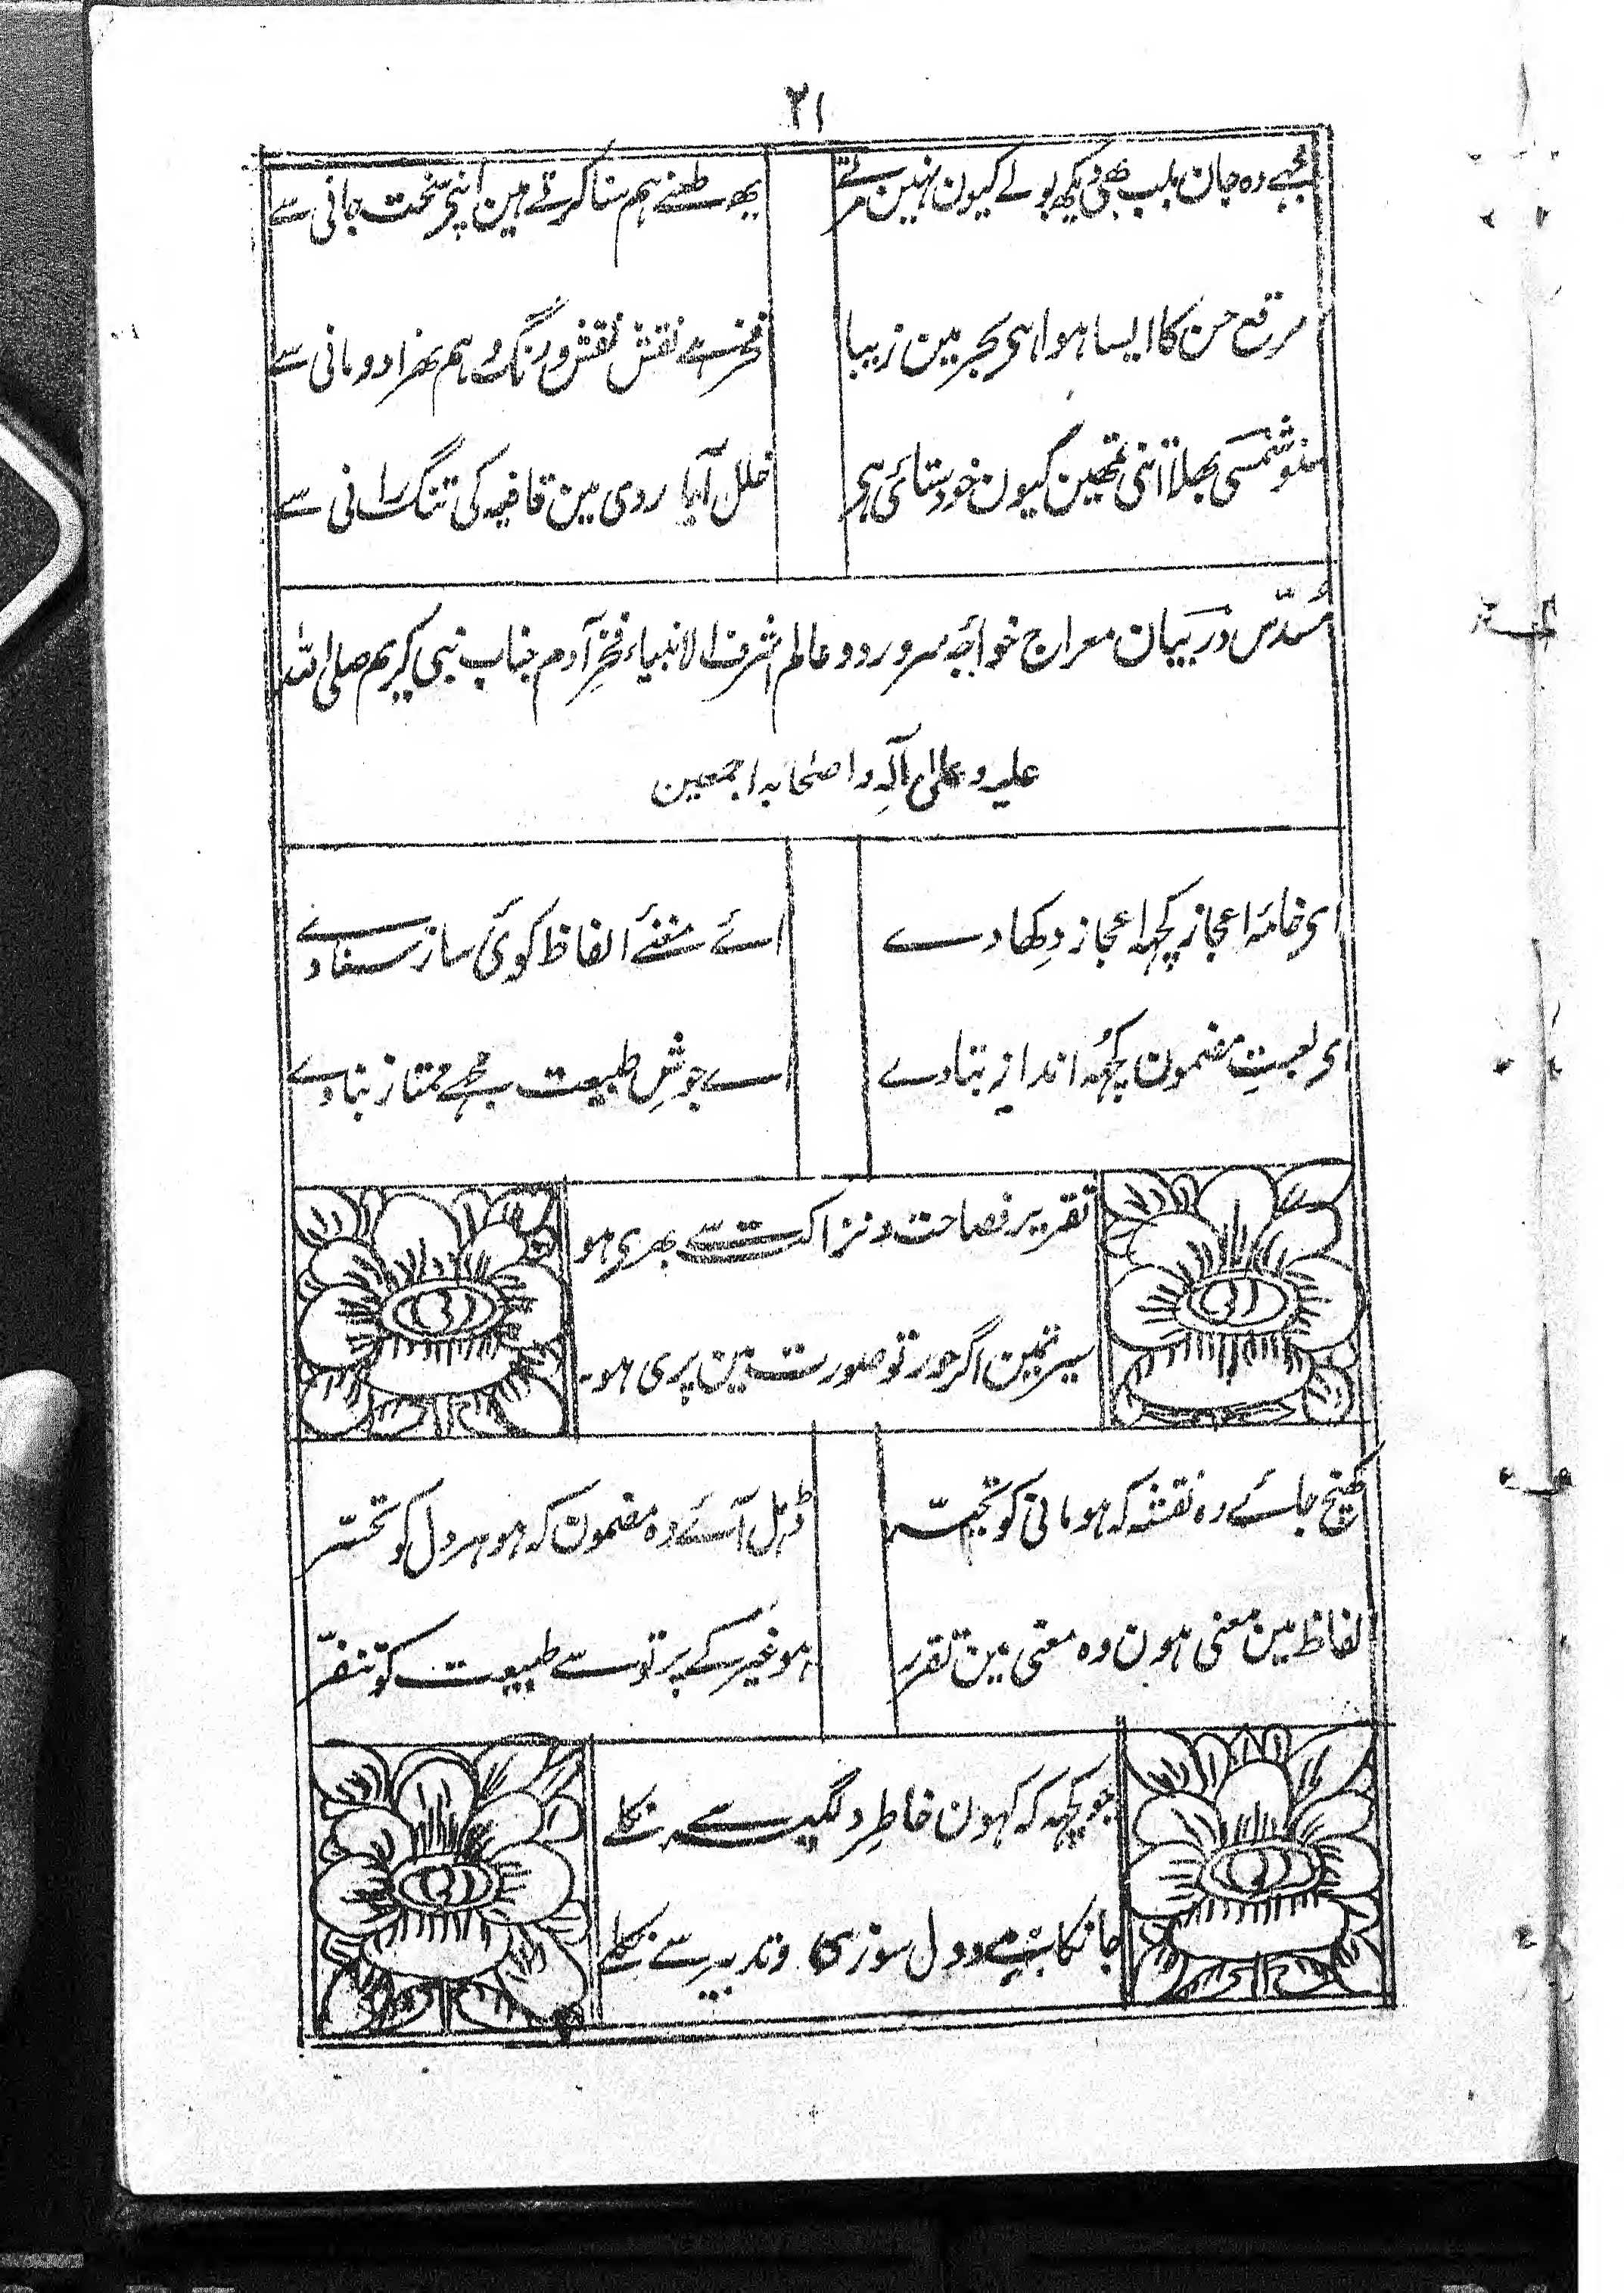 ۲۱
مجھے وہ جان بلب بھی دیکھ بولے کیون نہین مرتے
یہ طعنے ہم سنا کرتے ہین اپنی سخت جانی سے
مرقع حسن کا ایسا ہوا ہی بحر مین زیبا
فخر ہے نقش نقش و رنگ و ہم بہزاد و مانی سے
سنو شمسی بھلا اتنی تمھین کیون خود ستائی ہی
خلل آیا ردی مین قافیہ کی تنگ رانی سے
مُسدّس در بَیان معراج خواجہ سرور دو عالم اشرف الانبیاء فخرِ آدم جناب نبی کریم صلی اللہ
علیہ و علیٰ آلہٖ و اصحابہ اجمعین
ای خامۂ اعجاز کچہہ اعجاز دِکھا دے
اے مغنئے الفاظ کوئی ساز سنا دے
ای لعبتِ مضمون کچہہ انداز بتا دے
اے جوشِ طبیعت مجھے ممتاز بنا دے
تقریر فصاحت و نزاکت سے بھری ہو
سیرتمین اگر حور تو صورت مین پری ہو۔
کھنچ جائے وہ نقشہ کہ ہو مانی کو تحیّر
ڈہل آئے وہ مضمون کہ ہو ہر دل کو تحسّر
لفاظ مین معنی ہون وہ معنی مین تقرر
ہو غیر کے پرتو سے طبیعت کو تنفّر
جو کچہہ کہ کہون خاطرِ دلگیر سے نکلے
جانکاہئے و دل سوزی و تدبیر سے نکلے